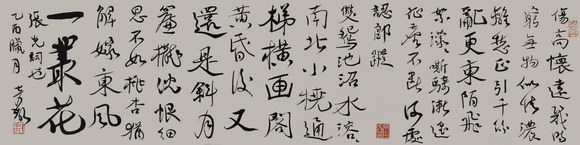 傷高懷遠幾時
窮無物似情濃
離愁正引千絲
亂更東陌飛
絮濛々嘶騎漸遥
征塵不斷何處
認郎蹤
雙鴛池沼水溶々
南北小橈通
梯橫画閣
黄昏後又
還是斜月
簾櫳沈恨細
思不如桃杏猶
解嫁東風
一叢花
張先詞
乙酉臘月